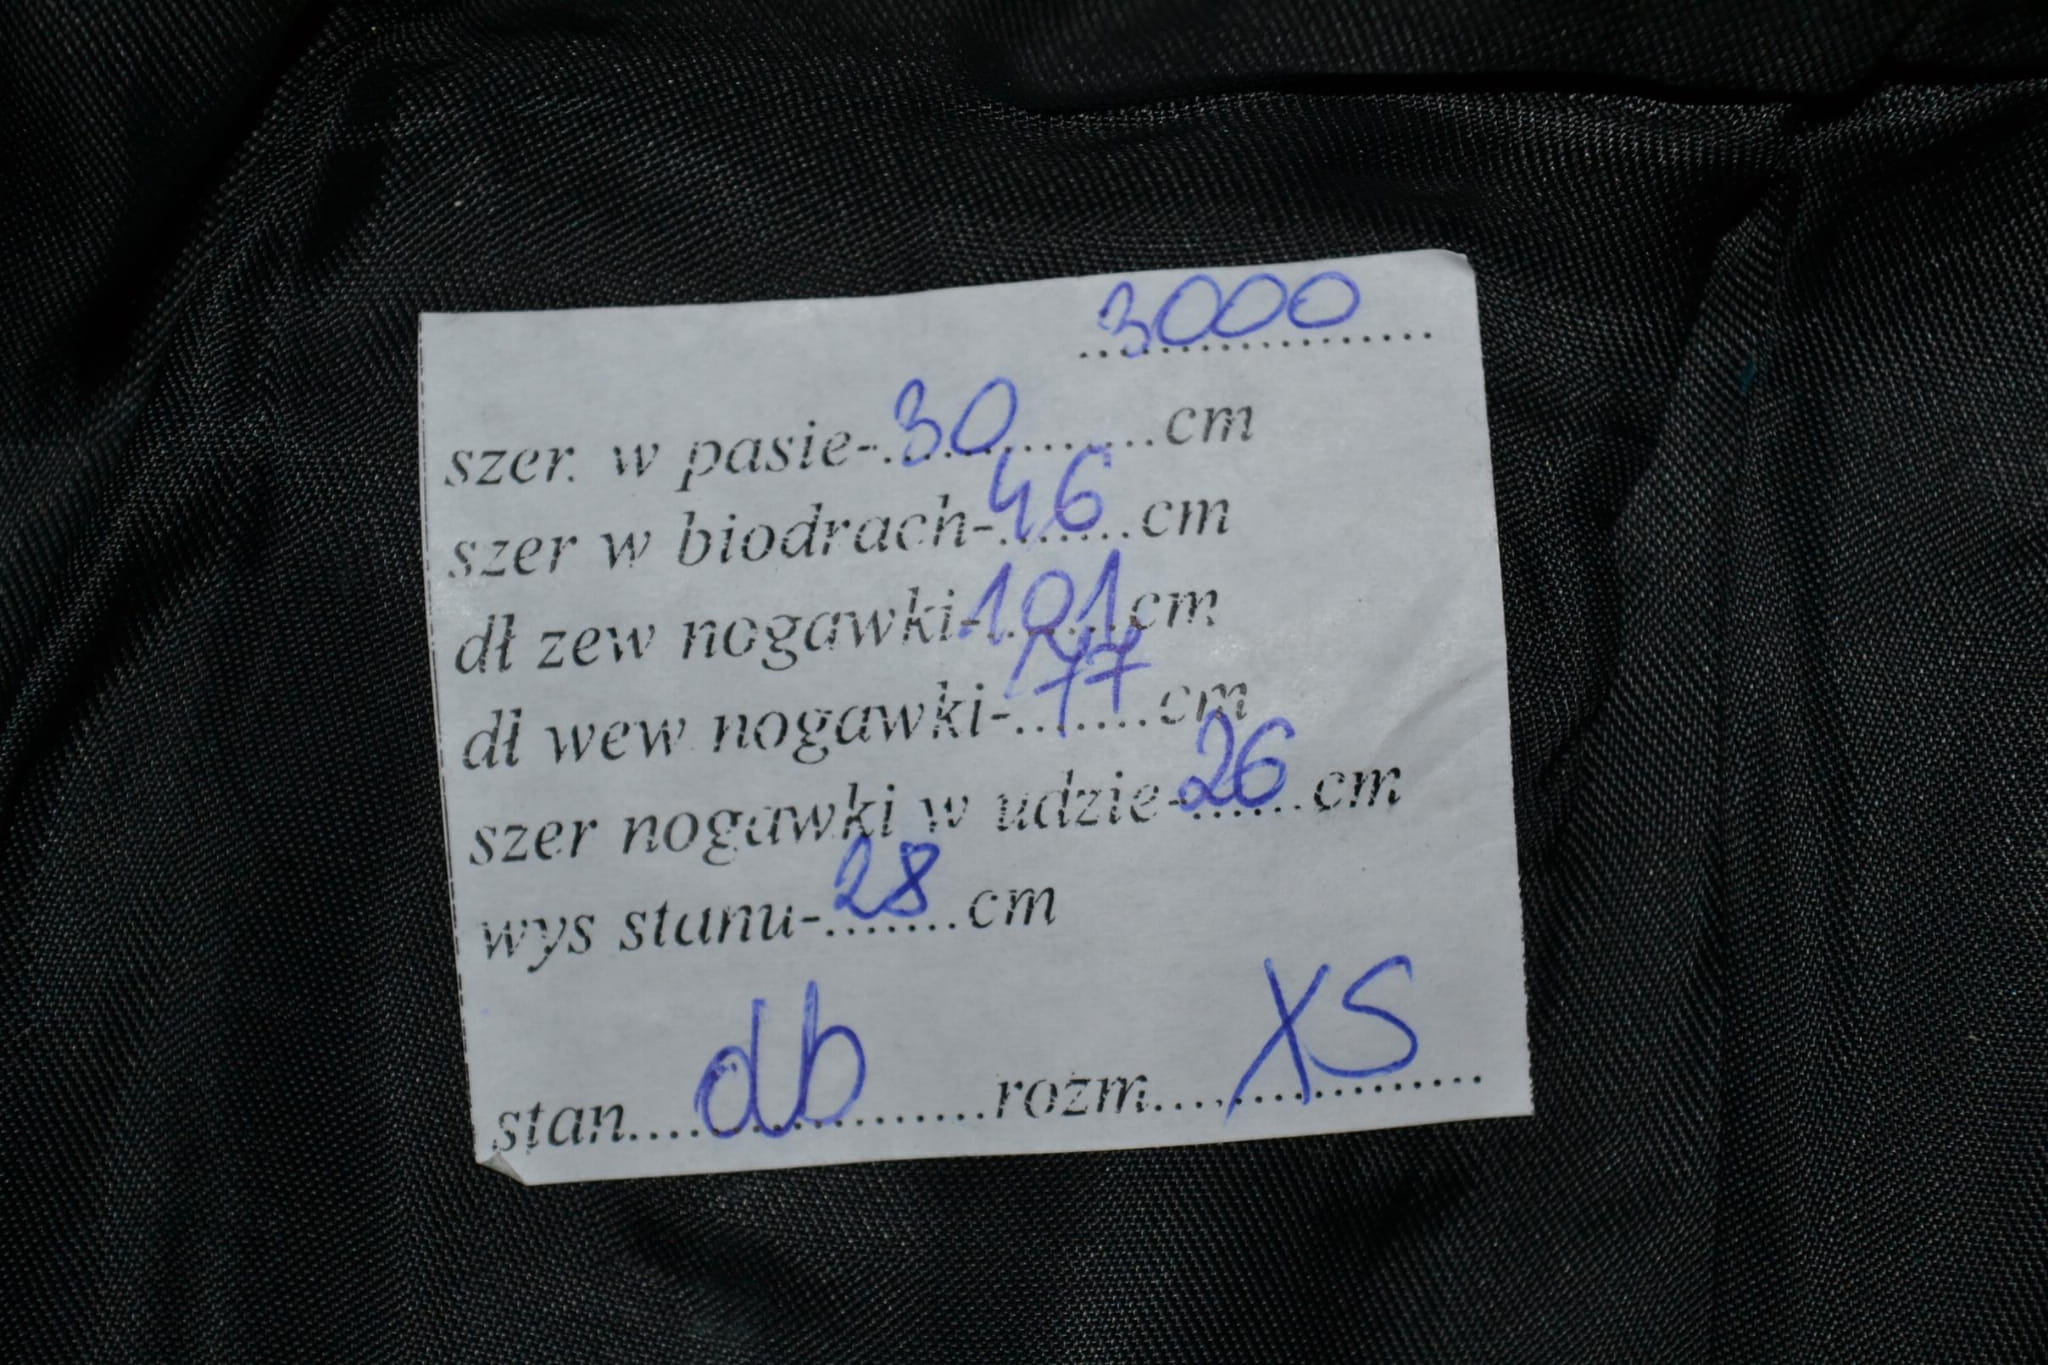 3000
szer. w pasie-30 cm
szer w biodrach-46 cm
dł zew nogawki-101 cm
dł wew nogawki-77 cm
szer nogawki w udzie-26 cm
wys stanu-28 cm
stan....db..........rozm....XS